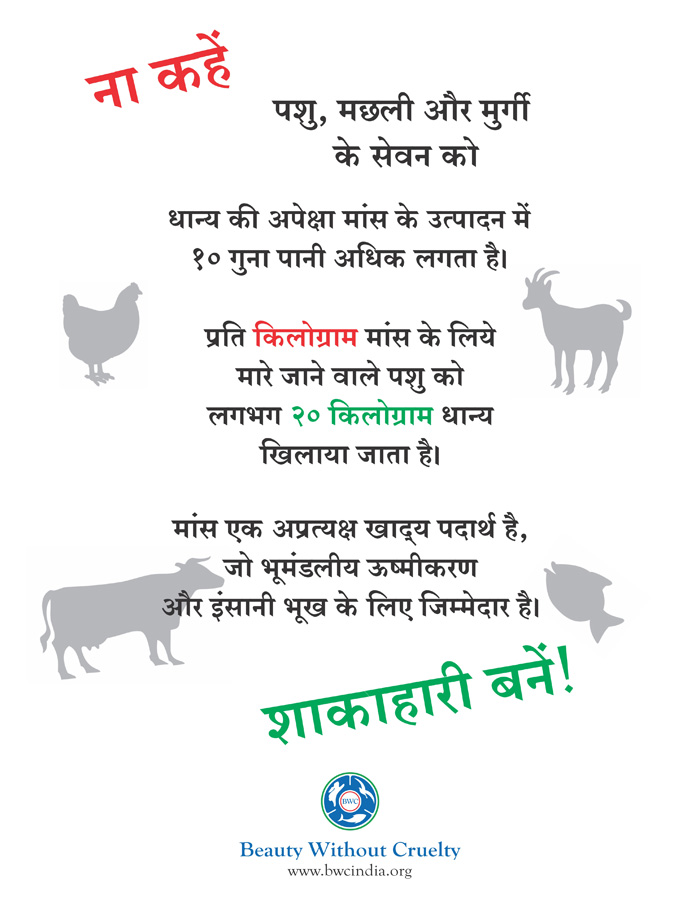 ना कहें
पशु, मछली और मुर्गी
के सेवन को
धान्य की अपेक्षा मांस के उत्पादन में
१० गुना पानी अधिक लगता है।
प्रति किलोग्राम मांस के लिये
मारे जाने वाले पशु को
लगभग २० किलोग्राम धान्य
खिलाया जाता है।
मांस एक अप्रत्यक्ष खाद्य पदार्थ है,
जो भूमंडलीय ऊष्मीकरण
और इंसानी भूख के लिए जिम्मेदार है।
शाकाहारी बनें!
BWC
Beauty Without Cruelty
www.bwcindia.org